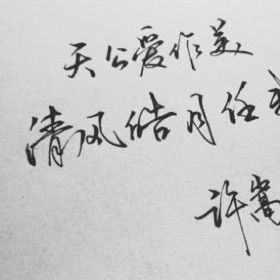 天公爱作美
清风皓月任
许嵩